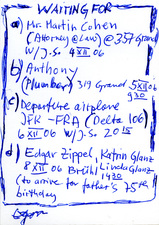 WAITING FOR
a) Mr. Martin Cohen
(Attorney @ Law) @ 357 Grand
W/J.S. 4 XII 06
b) Anthony
(Plumber) 319 Grand 5 XII 06
9 30
c) Departure airplane
JFK - FRA (Delta 106)
6 XII 06 W/J.S. 20 15
d) Edgar Zippel, Katrin Glanz
8 XII 06 Brühl Linda Glanz
14 30
(to arrive for father's 75th
birthday